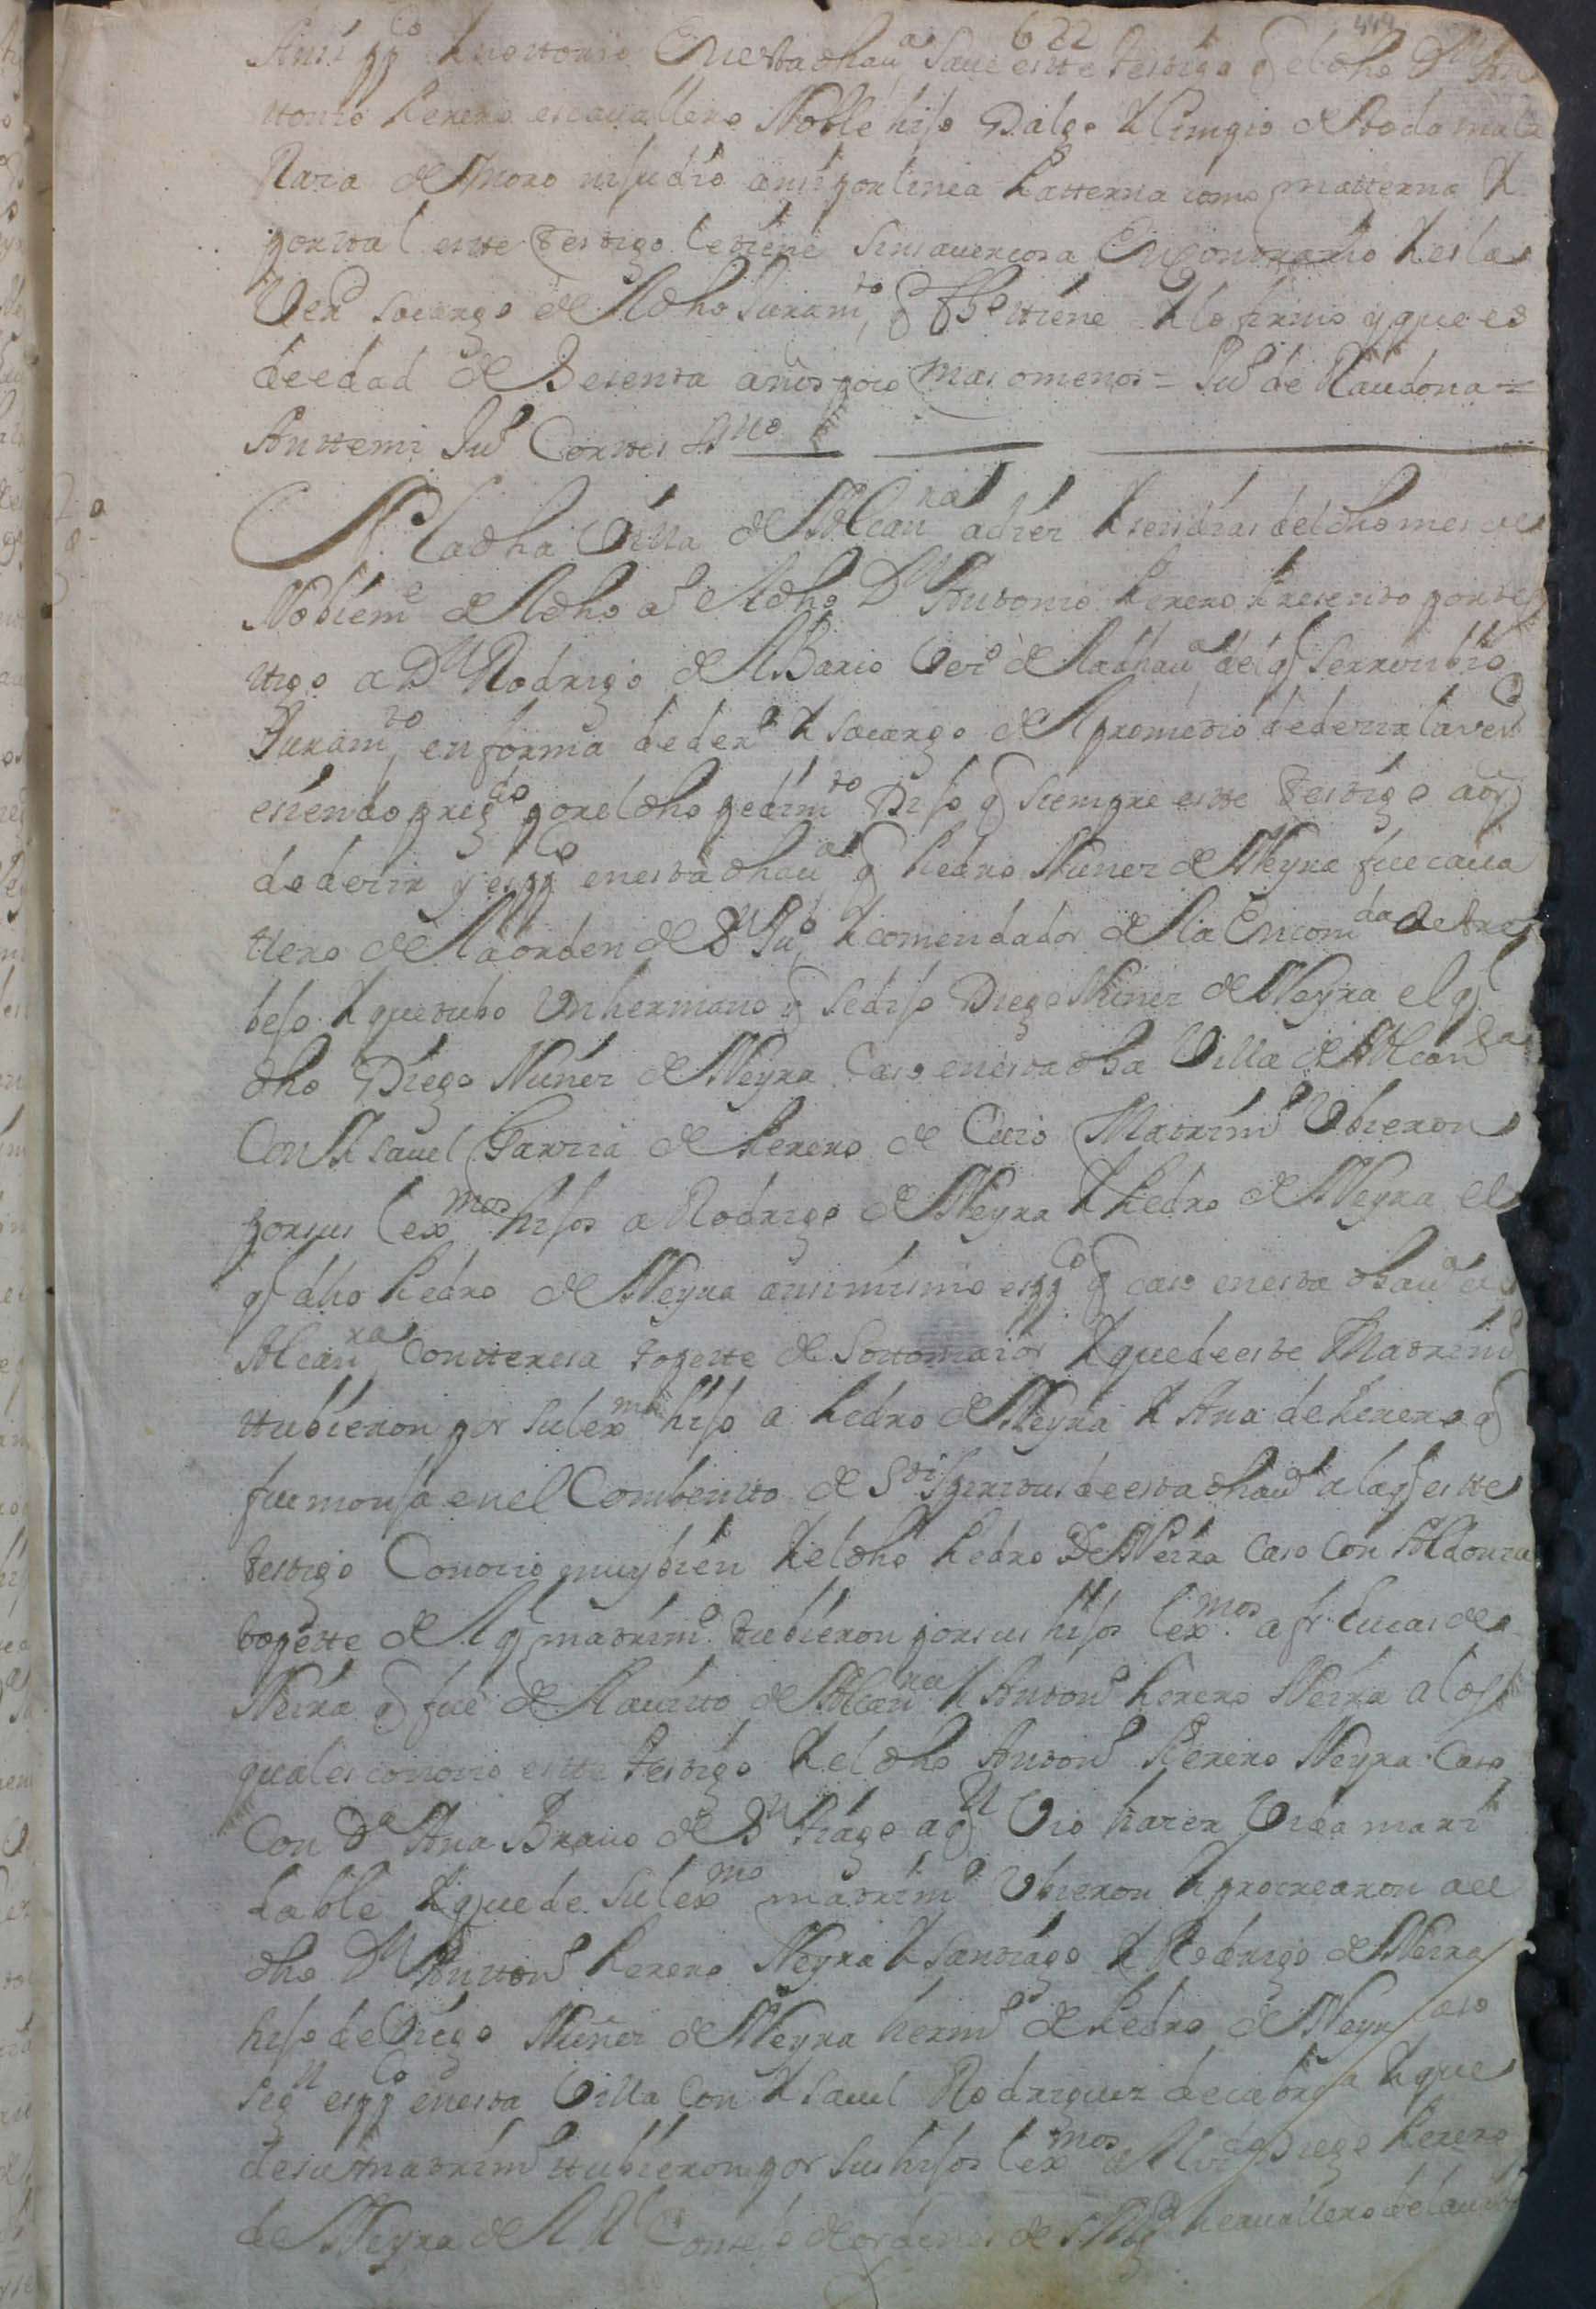 622
Ansi pp.co Y notorio En esta dha u.a Saue este testigo q el dho D.n An
ttonio Perero es cauallero Noble hijo Dalgo Y limpio de toda mala
Raza de Moro ni judio ansi por linea Patterna como matterna Y
por tal este testigo le tiene sin sauer cosa En Contrario Y es la
Verd socargo del dho Juram.to q ff.ho tiene Y lo firmo y que es
de edad de Setenta años poco mas omenos = Ju.o de Raudona =
Anttemi Ju.o Corttes
En la dha Villa de Alcan.ra a diez Y seis dias del dho mes de
Nobiem.e del dho a.o el dho D.n Antonio Perero Presento por tes
ttigo a D.n Rodrigo del Barco Vez.o de la dha u.a del q Se rreuibio
Juram.to en forma de der.o Y socargo del prometio de dezir la verd
e siendo preg.do por el dho pedim.to Dijo q Siempre este testigo a oy
do dezir y es pp.co en esta dha u.a q Pedro Nuñez de Neyra fue caua
llero de la orden de S.n Ju.o Y comendador de la Encom.da de
bejo Y que tubo Un hermano q Se dijo Diego Nuñez de Neyra el q
dho Diego Nuñez de Neyra Caso en esta dha Villa de Alcan.ra
Con Ysauel Garzia de Perero de Cuio Matrim.o Ubieron
por sus lex.mos hijos a Rodrigo de Neyra Y Pedro de Neyra el
q dho Pedro de Neyra ansimismo es pp.co q caso en esta dha u.a de
Alcan.ra Con tteresa topette de Sottomaior Y que de este Matrim.o
ttubieron por su lex.mo hijo a Pedro de Neyra Y Ana de Perero q
fue monja en el Combentto de S.ti Spiritus de esta dha u.a a la q este
testigo Conozio muy bien Y el dho Pedro De Neira Caso Con Aldonza
topette del q matrim.o tubieron por sus hijos lex.mos a fr. Lucas de
Neira q fue del auitto de Alcan.ra Y Anton.o Perero Neira a los
quales conozio este testigo Y el dho Anton.o Perero Neyra Caso
Con D.a Ana Brauo de S.n tiago a q.n Vio hazer Vida mari
dable Y que de su lex.mo matrim.o Ubieron Y procrearon a el
dho D.n Antton.o Perero Neyra Y Santiago Y Rodrigo de Neira
hijo de Diego Nuñez de Neyra herm.o de Pedro de Neyra caso
Seg.n es pp.co en esta Villa Con Ysauel Rodriguez de cabrera Y que
de su Matrim.o ttubieron por sus hijos lex.mos a Diego Perero
de Neyra del R.l Consejo de ordenes de S. Mg.d Y cauallero del auito